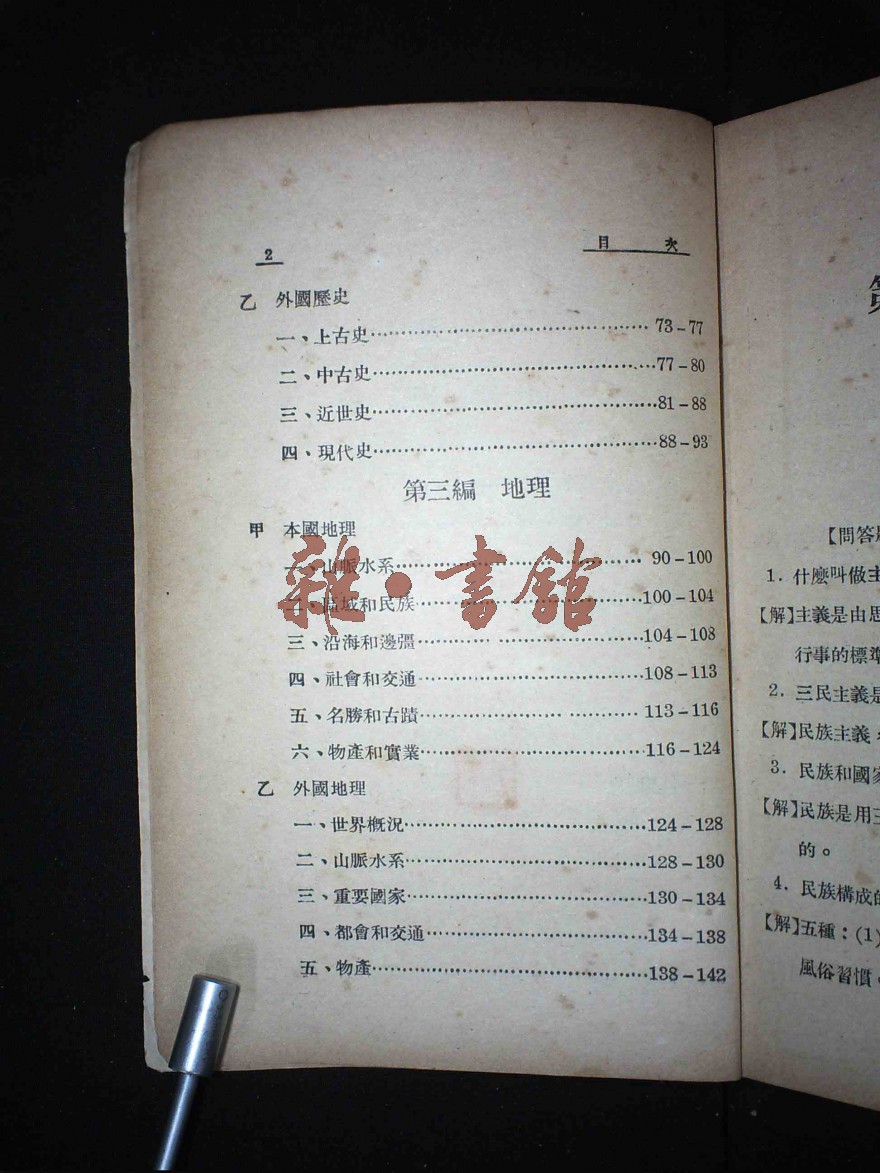 2
目 次
乙 外國歷史
一、上古史 73-77
二、中古史 77-80
三、近世史 81-88
四、現代史 88-93
第三編 地理
甲 本國地理
一、山脈水系 90-100
二、區域和民族 100-104
三、沿海和邊疆 104-108
四、社會和交通 108-113
五、名勝和古蹟 113-116
六、物產和實業 116-124
乙 外國地理
一、世界概況 124-128
二、山脈水系 128-130
三、重要國家 130-134
四、都會和交通 134-138
五、物產 138-142
雜·書館
【問答
1. 什麼叫做主
【解】主義是由思
行事的標準
2. 三民主義是
【解】民族主義、
3. 民族和國
【解】民族是用
的。
4. 民族構成的
【解】五種：(1)
風俗習慣。